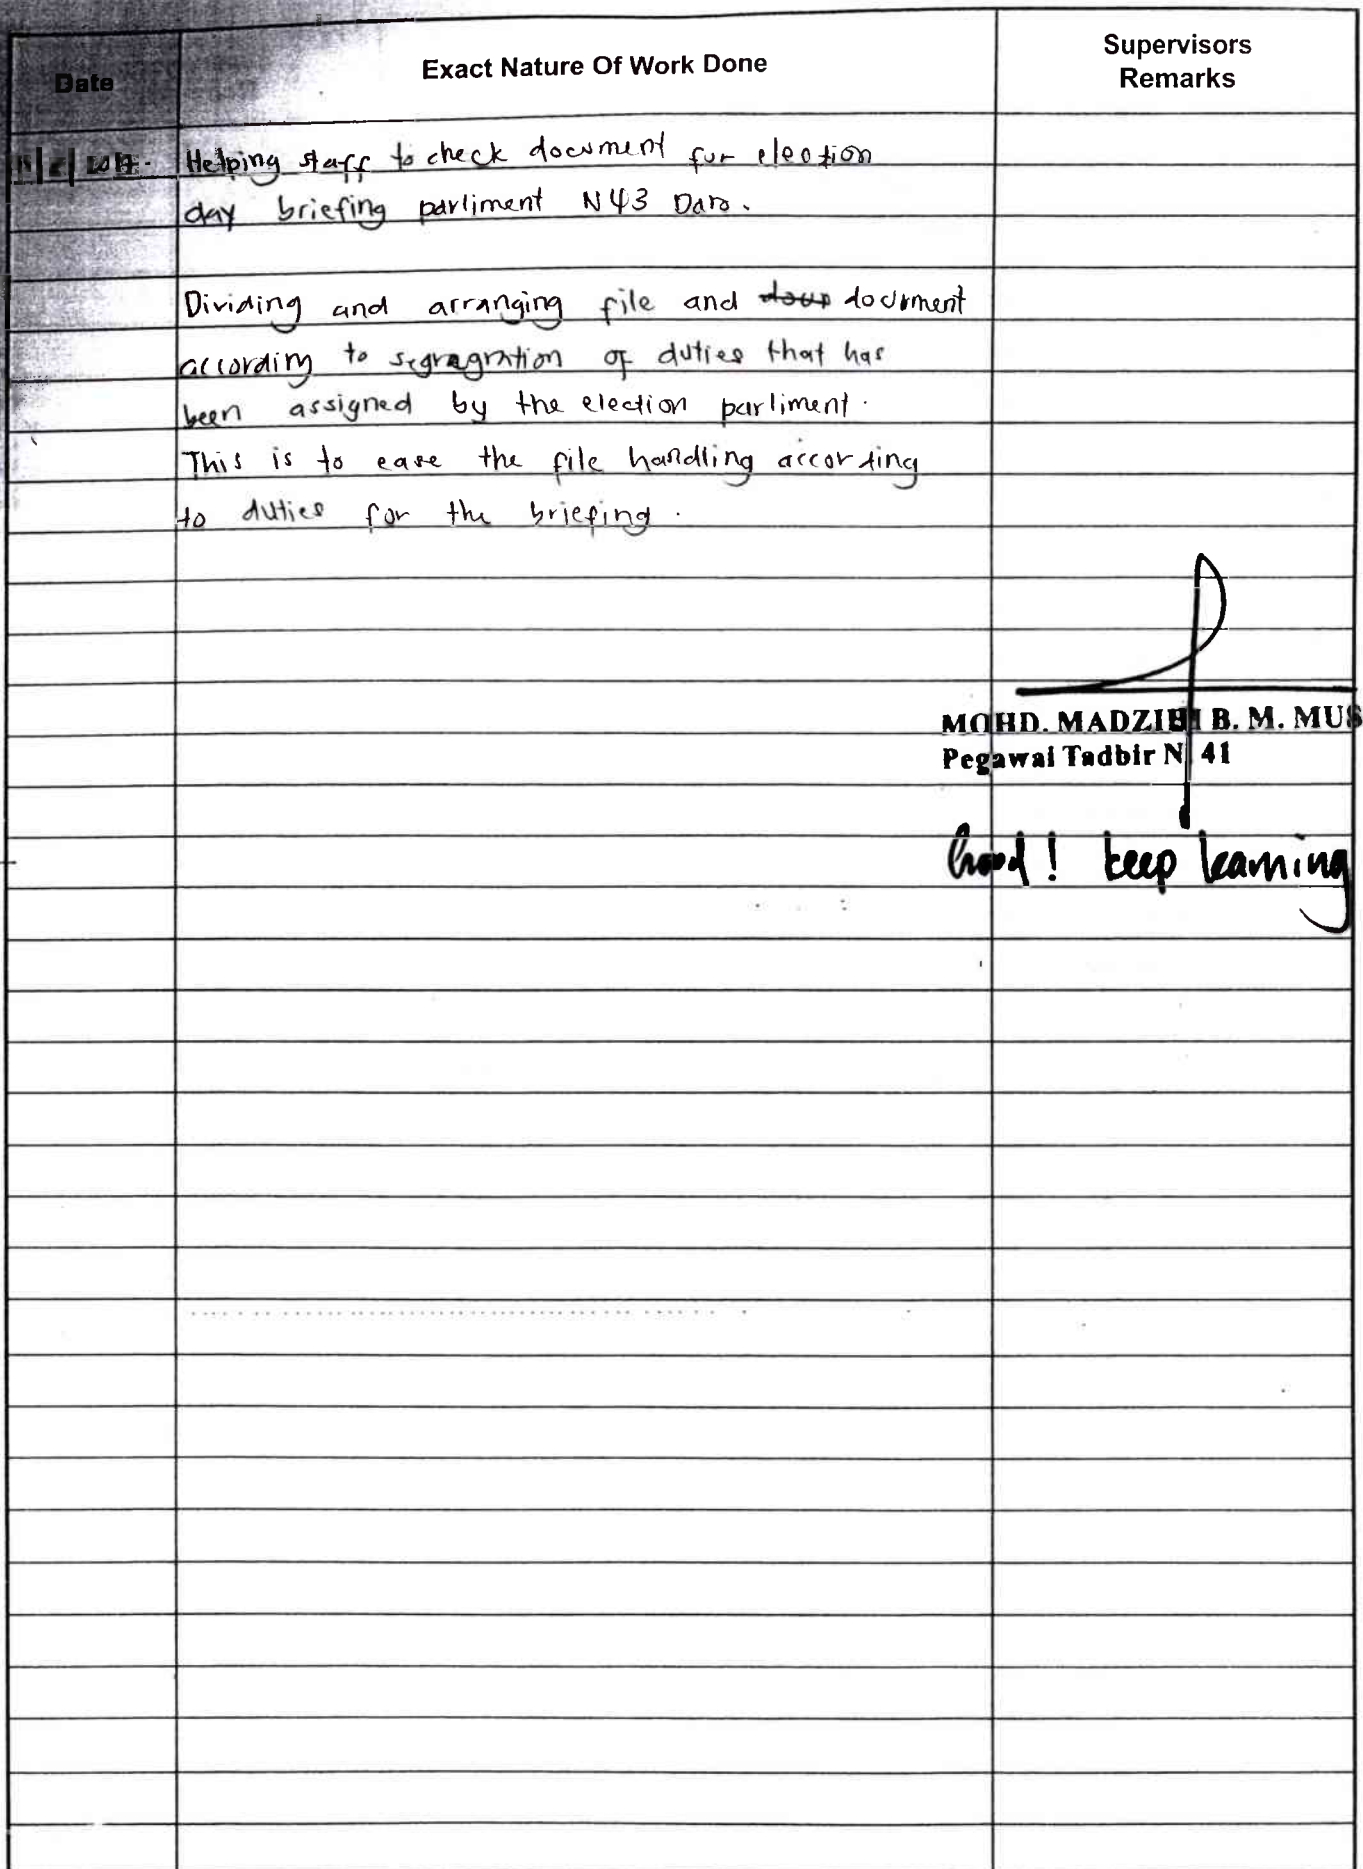 Date
Exact Nature Of Work Done
Supervisors
Remarks
Helping staff to check document for election
day briefing parliment N43 Daro.
Dividing and arranging file and document
according to segragration of duties that has
been assigned by the election parliment.
This is to ease the file handling according
to duties for the briefing.
MOHD. MADZIHI B. M. MUS
Pegawai Tadbir N 41
Good! keep learning